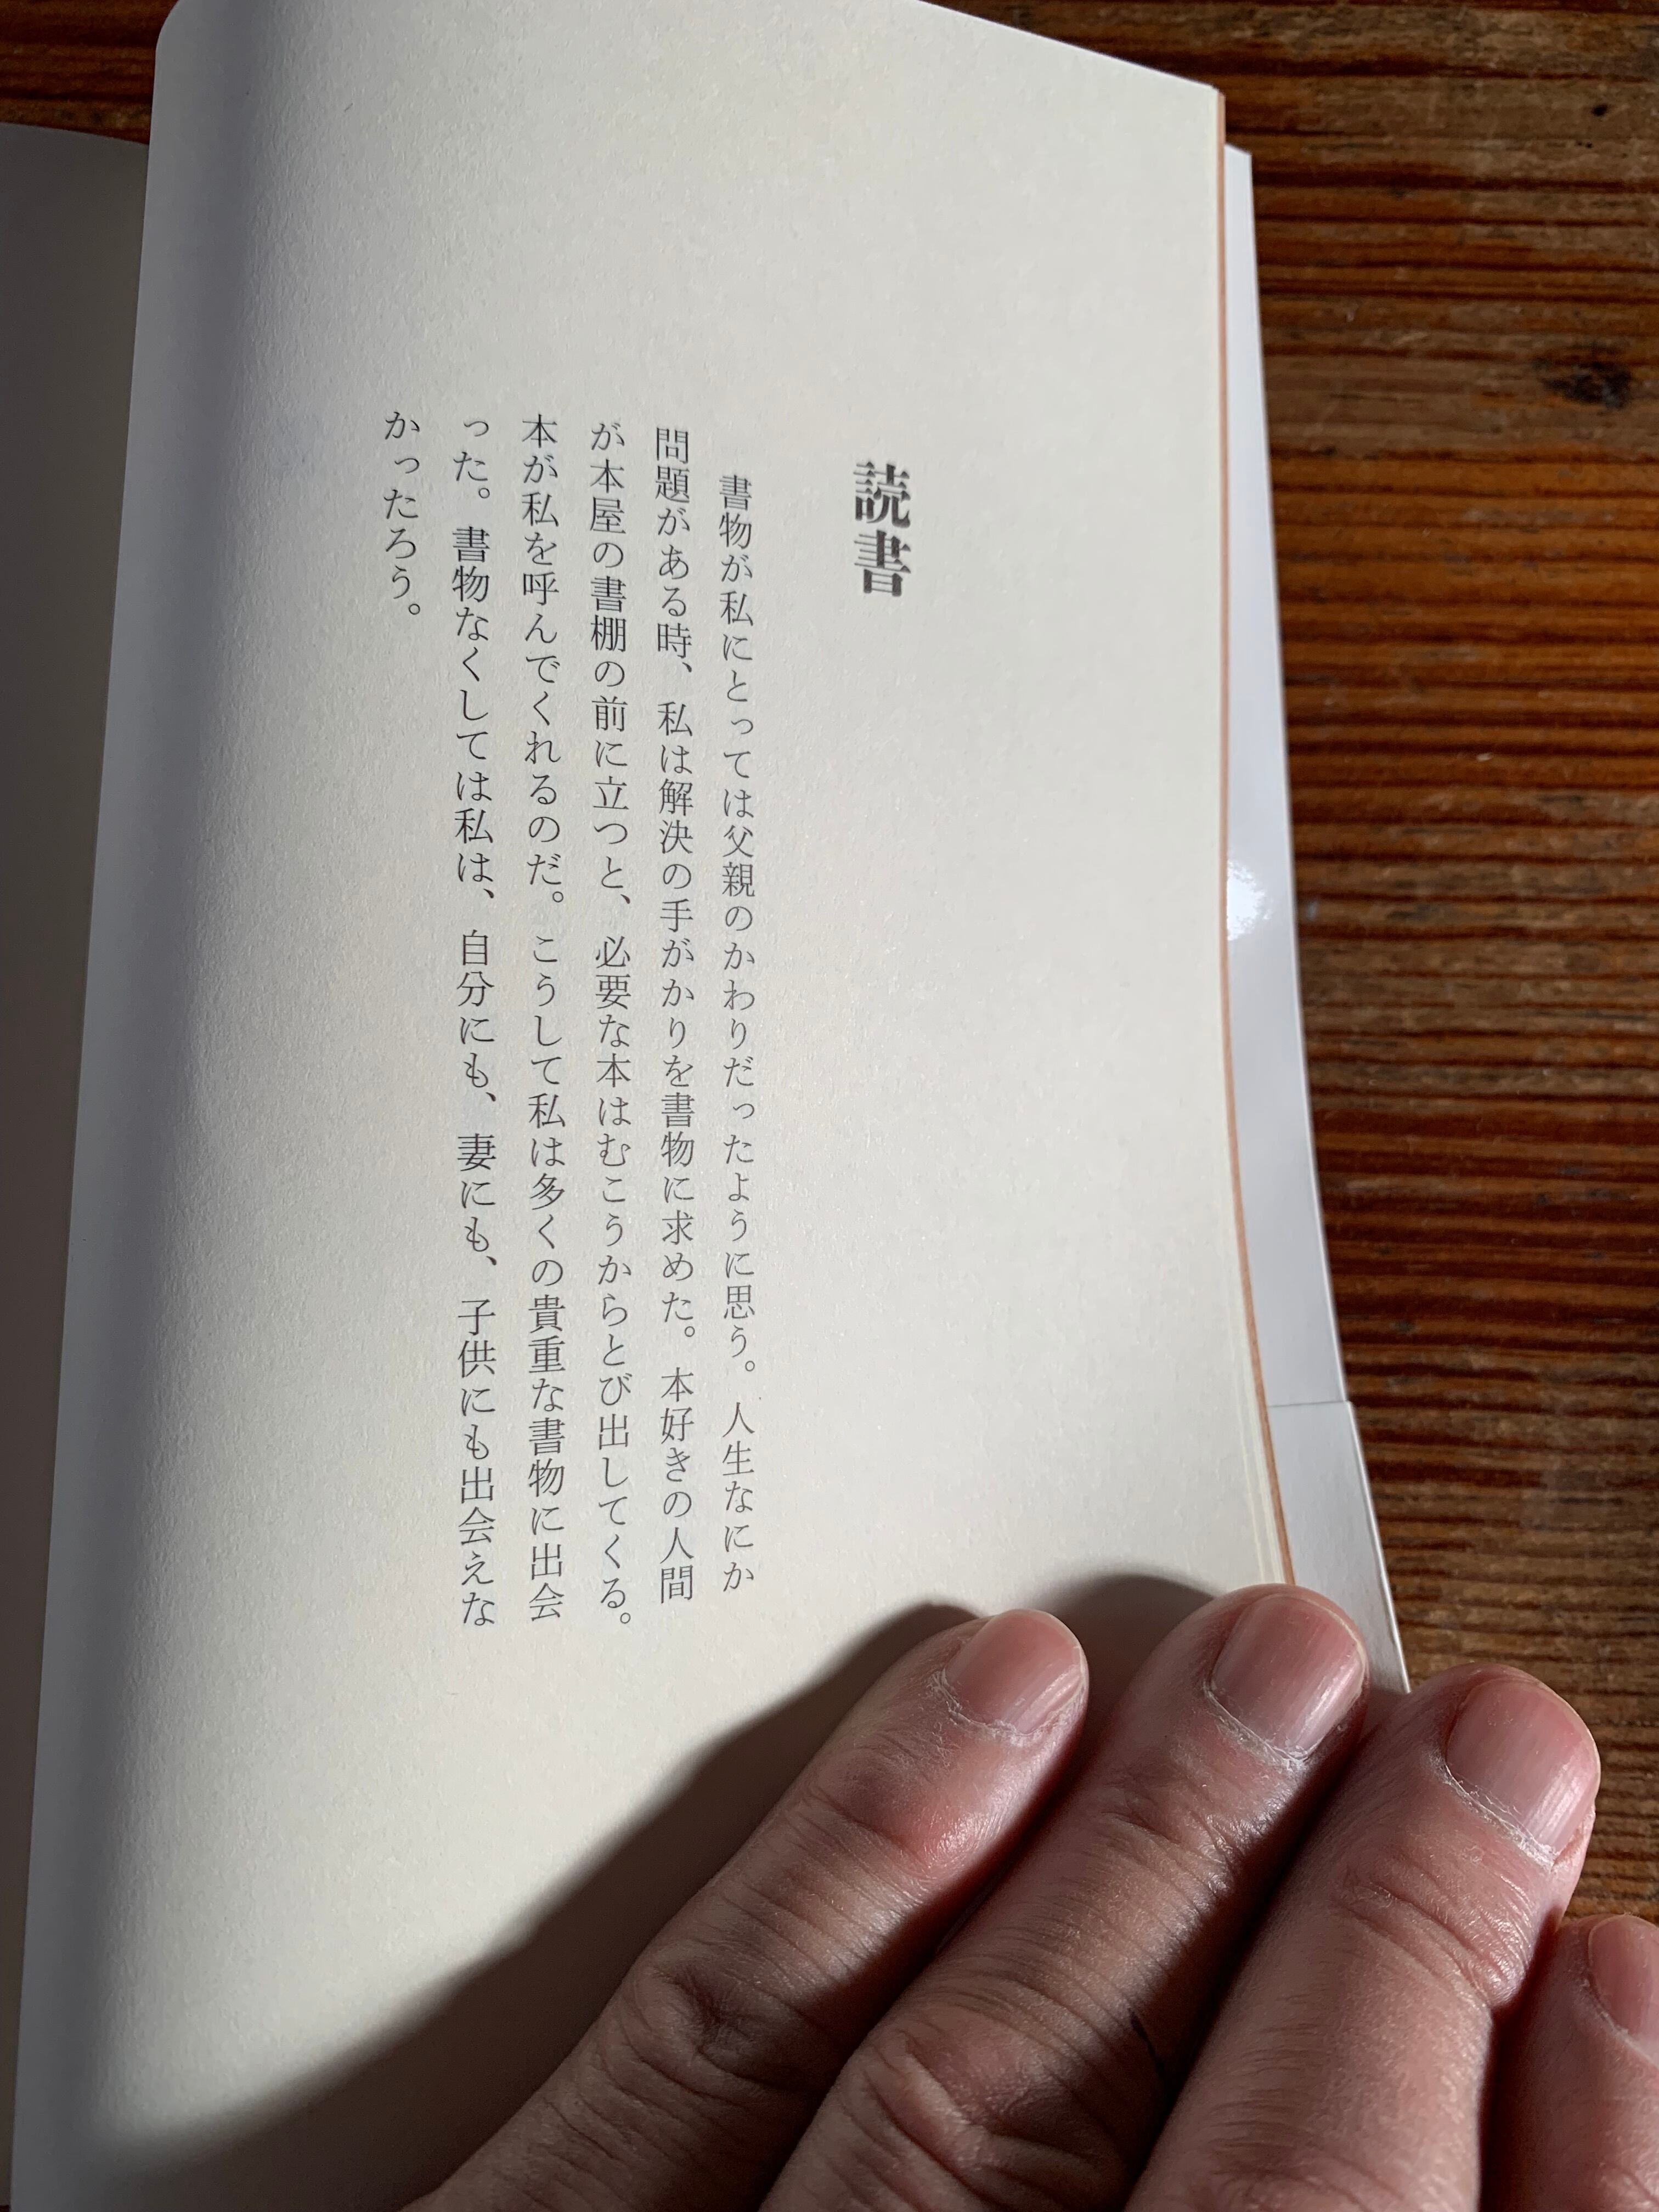 読書
書物が私にとっては父親のかわりだったように思う。人生なにか
問題がある時、私は解決の手がかりを書物に求めた。本好きの人間
が本屋の書棚の前に立つと、必要な本はむこうからとび出してくる。
本が私を呼んでくれるのだ。こうして私は多くの貴重な書物に出会
った。書物なくしては私は、自分にも、妻にも、子供にも出会えな
かったろう。